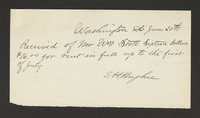 Washington DC June 20th
Received of Mr. Wm Scott Sixteen dollars
$16.00 for rent in full up to the first
of July
Hughes